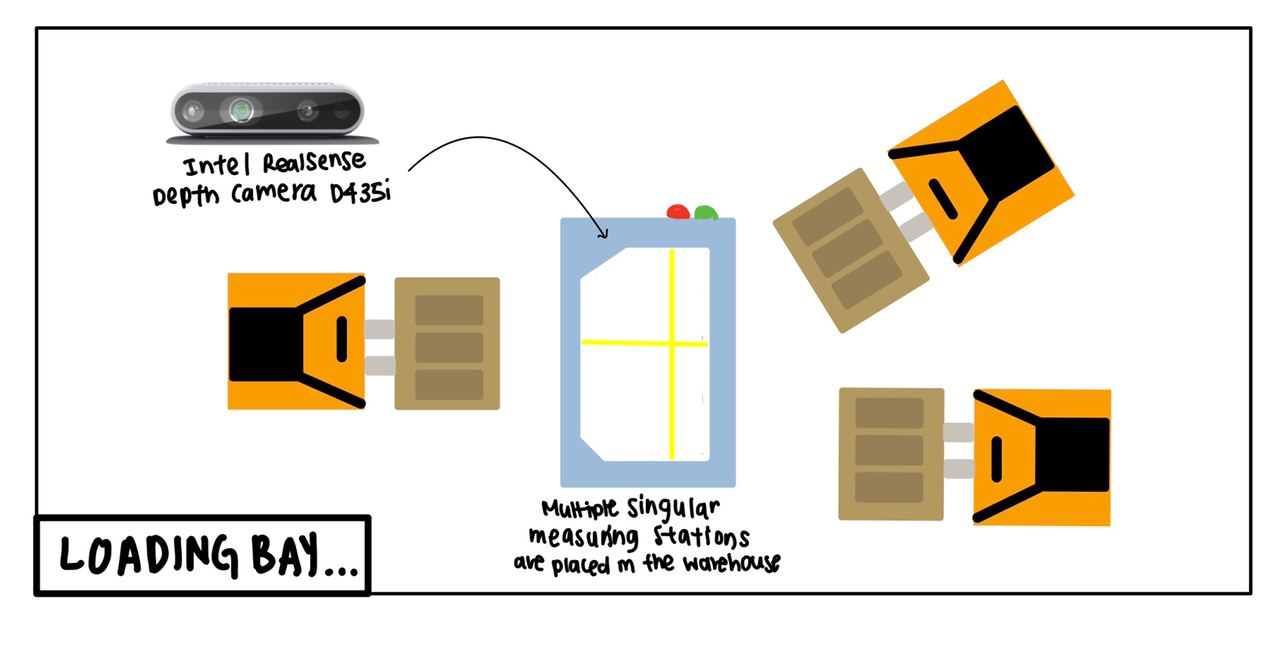 Intel RealSense
Depth Camera D435i
Multiple singular
measuring stations
are placed in the warehouse
LOADING BAY...